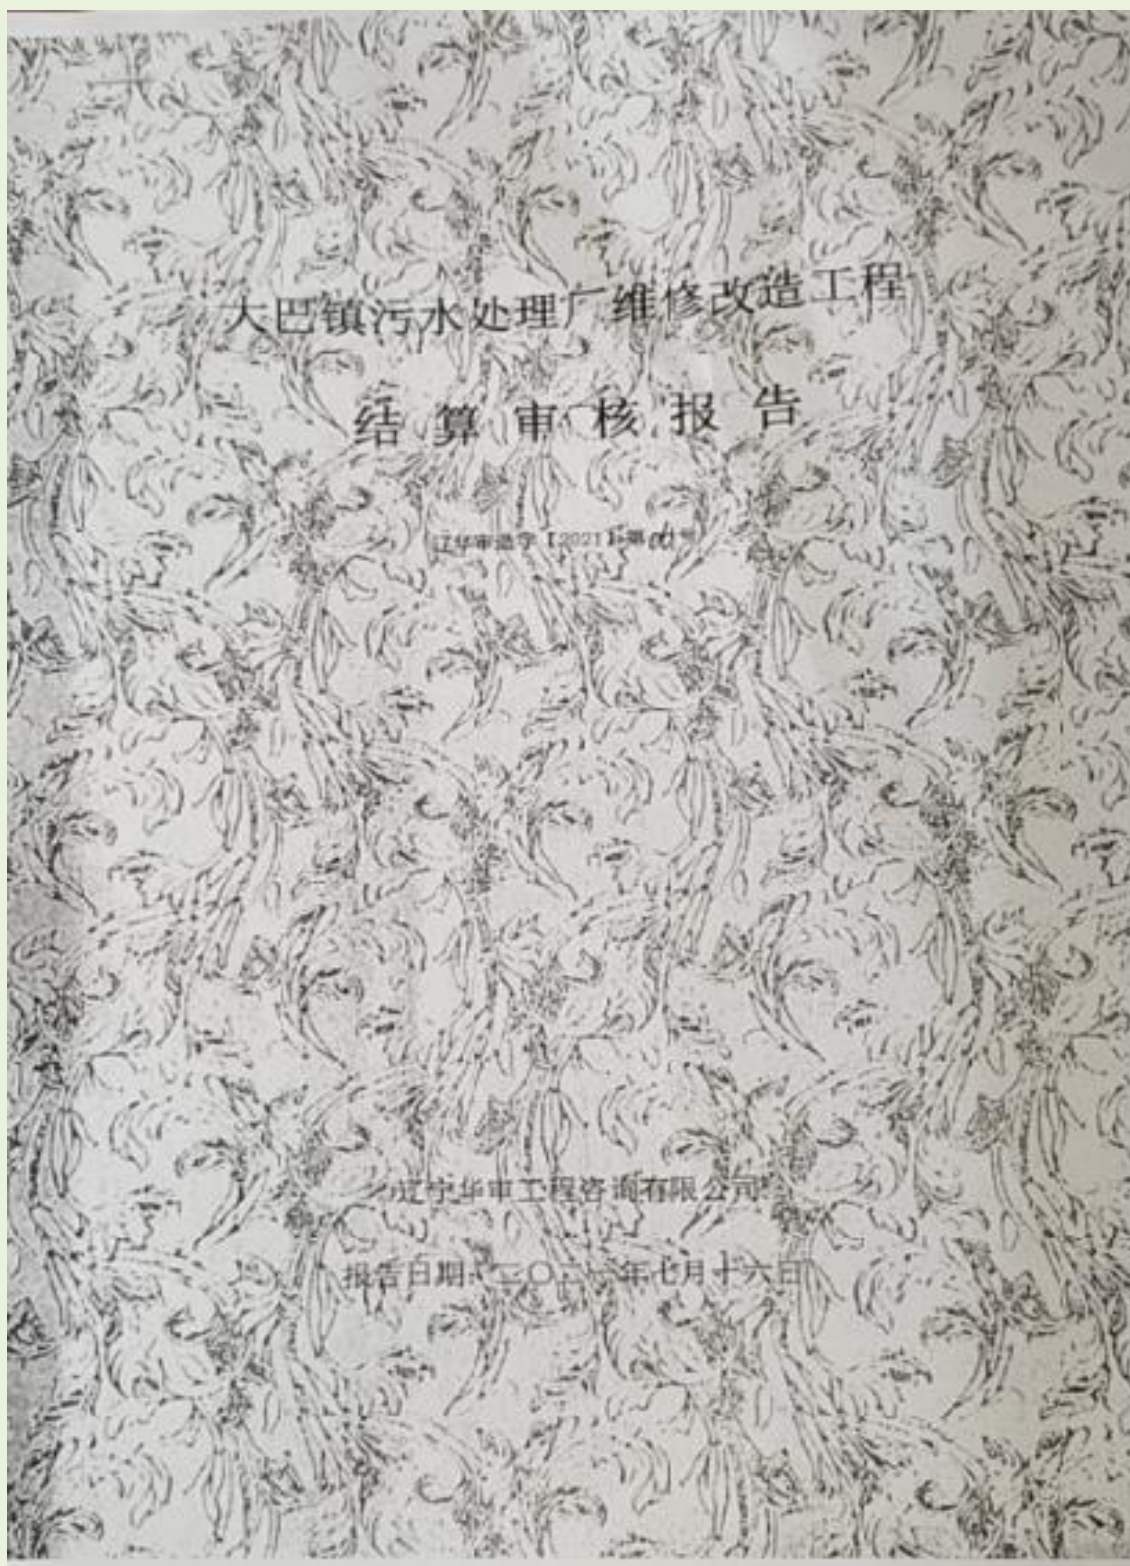 大巴镇污水处理厂维修改造工程
结算审核报告
辽华审造字【2021】第 号
辽宁华审工程咨询有限公司
报告日期:二〇二一年七月十六日